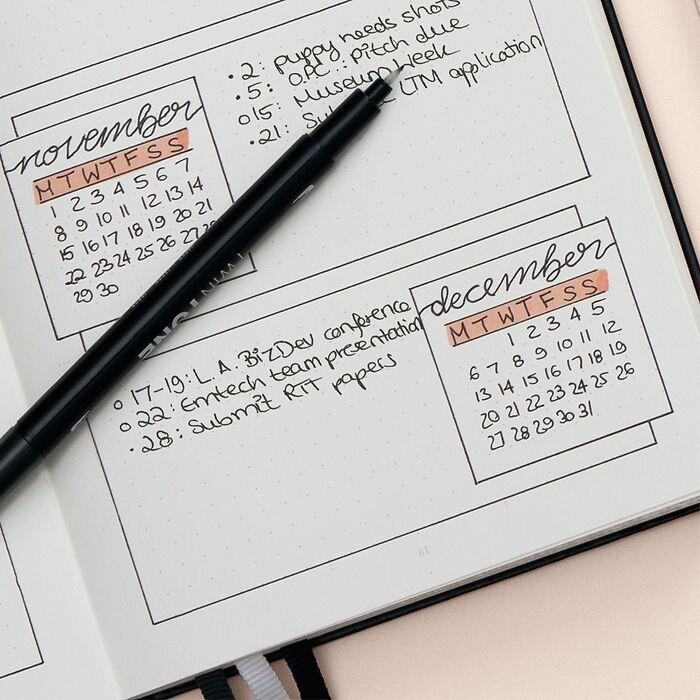 • 2: puppy needs shots
• 5: OPC: pitch due
o 15: Museum Week
• 21: LTM application
november
M T W T F S S
1 2 3 4 5 6 7
8 9 10 11 12 13 14
15 16 17 18 19 20 21
22 23 24 25 26 27
29 30
TWIN TONE
december
M T W T F S S
1 2 3 4 5
6 7 8 9 10 11 12
13 14 15 16 17 18 19
20 21 22 23 24 25 26
27 28 29 30 31
o 17-19: L.A. BizDev conference
o 22: Emtech team presentation
• 28: Submit RIT papers
61